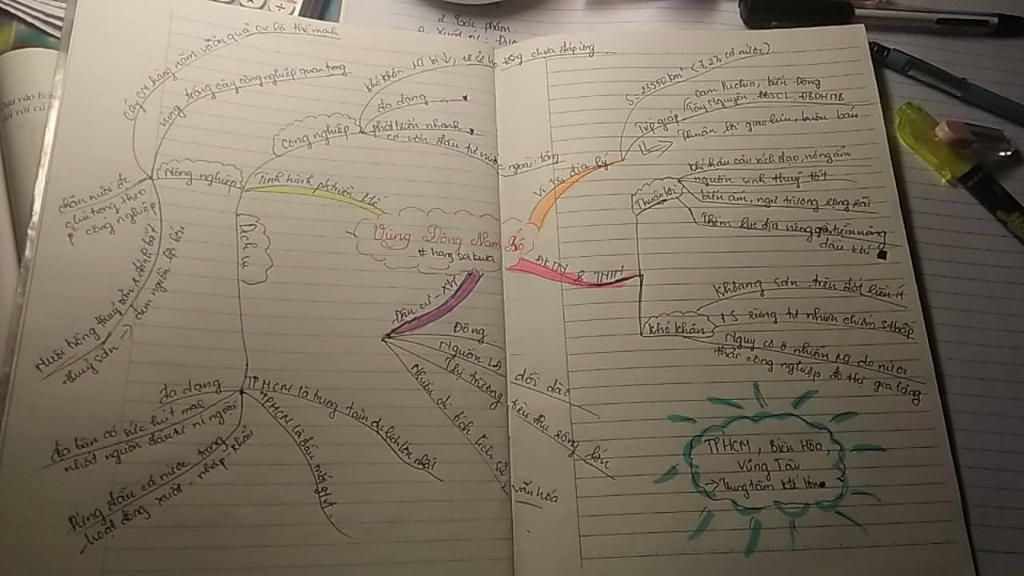 Vùng Đông Nam Bộ
# hang sa kura
Vị trí địa lý
S: 23550 km² (7,2% cả nước)
Tiếp giáp
Cam puchia, biển Đông
Tây Nguyên, ĐBSCL, DHNTB
Thuận lợi giao lưu, buôn bán
ĐKTN & TNTN
Thuận lợi
Khí hậu cận xích đạo, nóng ẩm
nguồn sinh thuỷ tốt
biển ấm, ngư trường rộng lớn
Thềm lục địa nông giàu tiềm năng
dầu khí
Khó khăn
Khoáng sản trên đất liền ít
T.S rừng tự nhiên chiếm % thấp
Nguy cơ ô nhiễm
thải công nghiệp, đô thị gia tăng
TPHCM, Biên Hòa,
Vũng Tàu
→ Trung tâm KT lớn
Dân cư - XH
Đông
Nguồn LĐ dồi dào
Thị trường tiêu thụ rộng lớn
Nhiều di tích lịch sử văn hóa
Tình hình phát triển KT
Công nghiệp
đa dạng
phát triển nhanh
có vốn đầu tư nước ngoài tăng
chưa đáp ứng
Nông nghiệp
vùng trồng cây công nghiệp quan trọng
Cây CN hàng năm, quả có thế mạnh
chăn nuôi
chú trọng theo
công nghiệp
Nuôi trồng thuỷ sản, đánh bắt
thuỷ sản →
đem nguồn lợi lớn
Dịch vụ
đa dạng
TPHCM là trung tâm du lịch lớn nhất
địa bàn có sức hút mạnh
nhất nguồn đầu tư nước ngoài
TPHCM là đầu mối GTVT
Dẫn đầu cả nước trong
hoạt động xuất - nhập khẩu